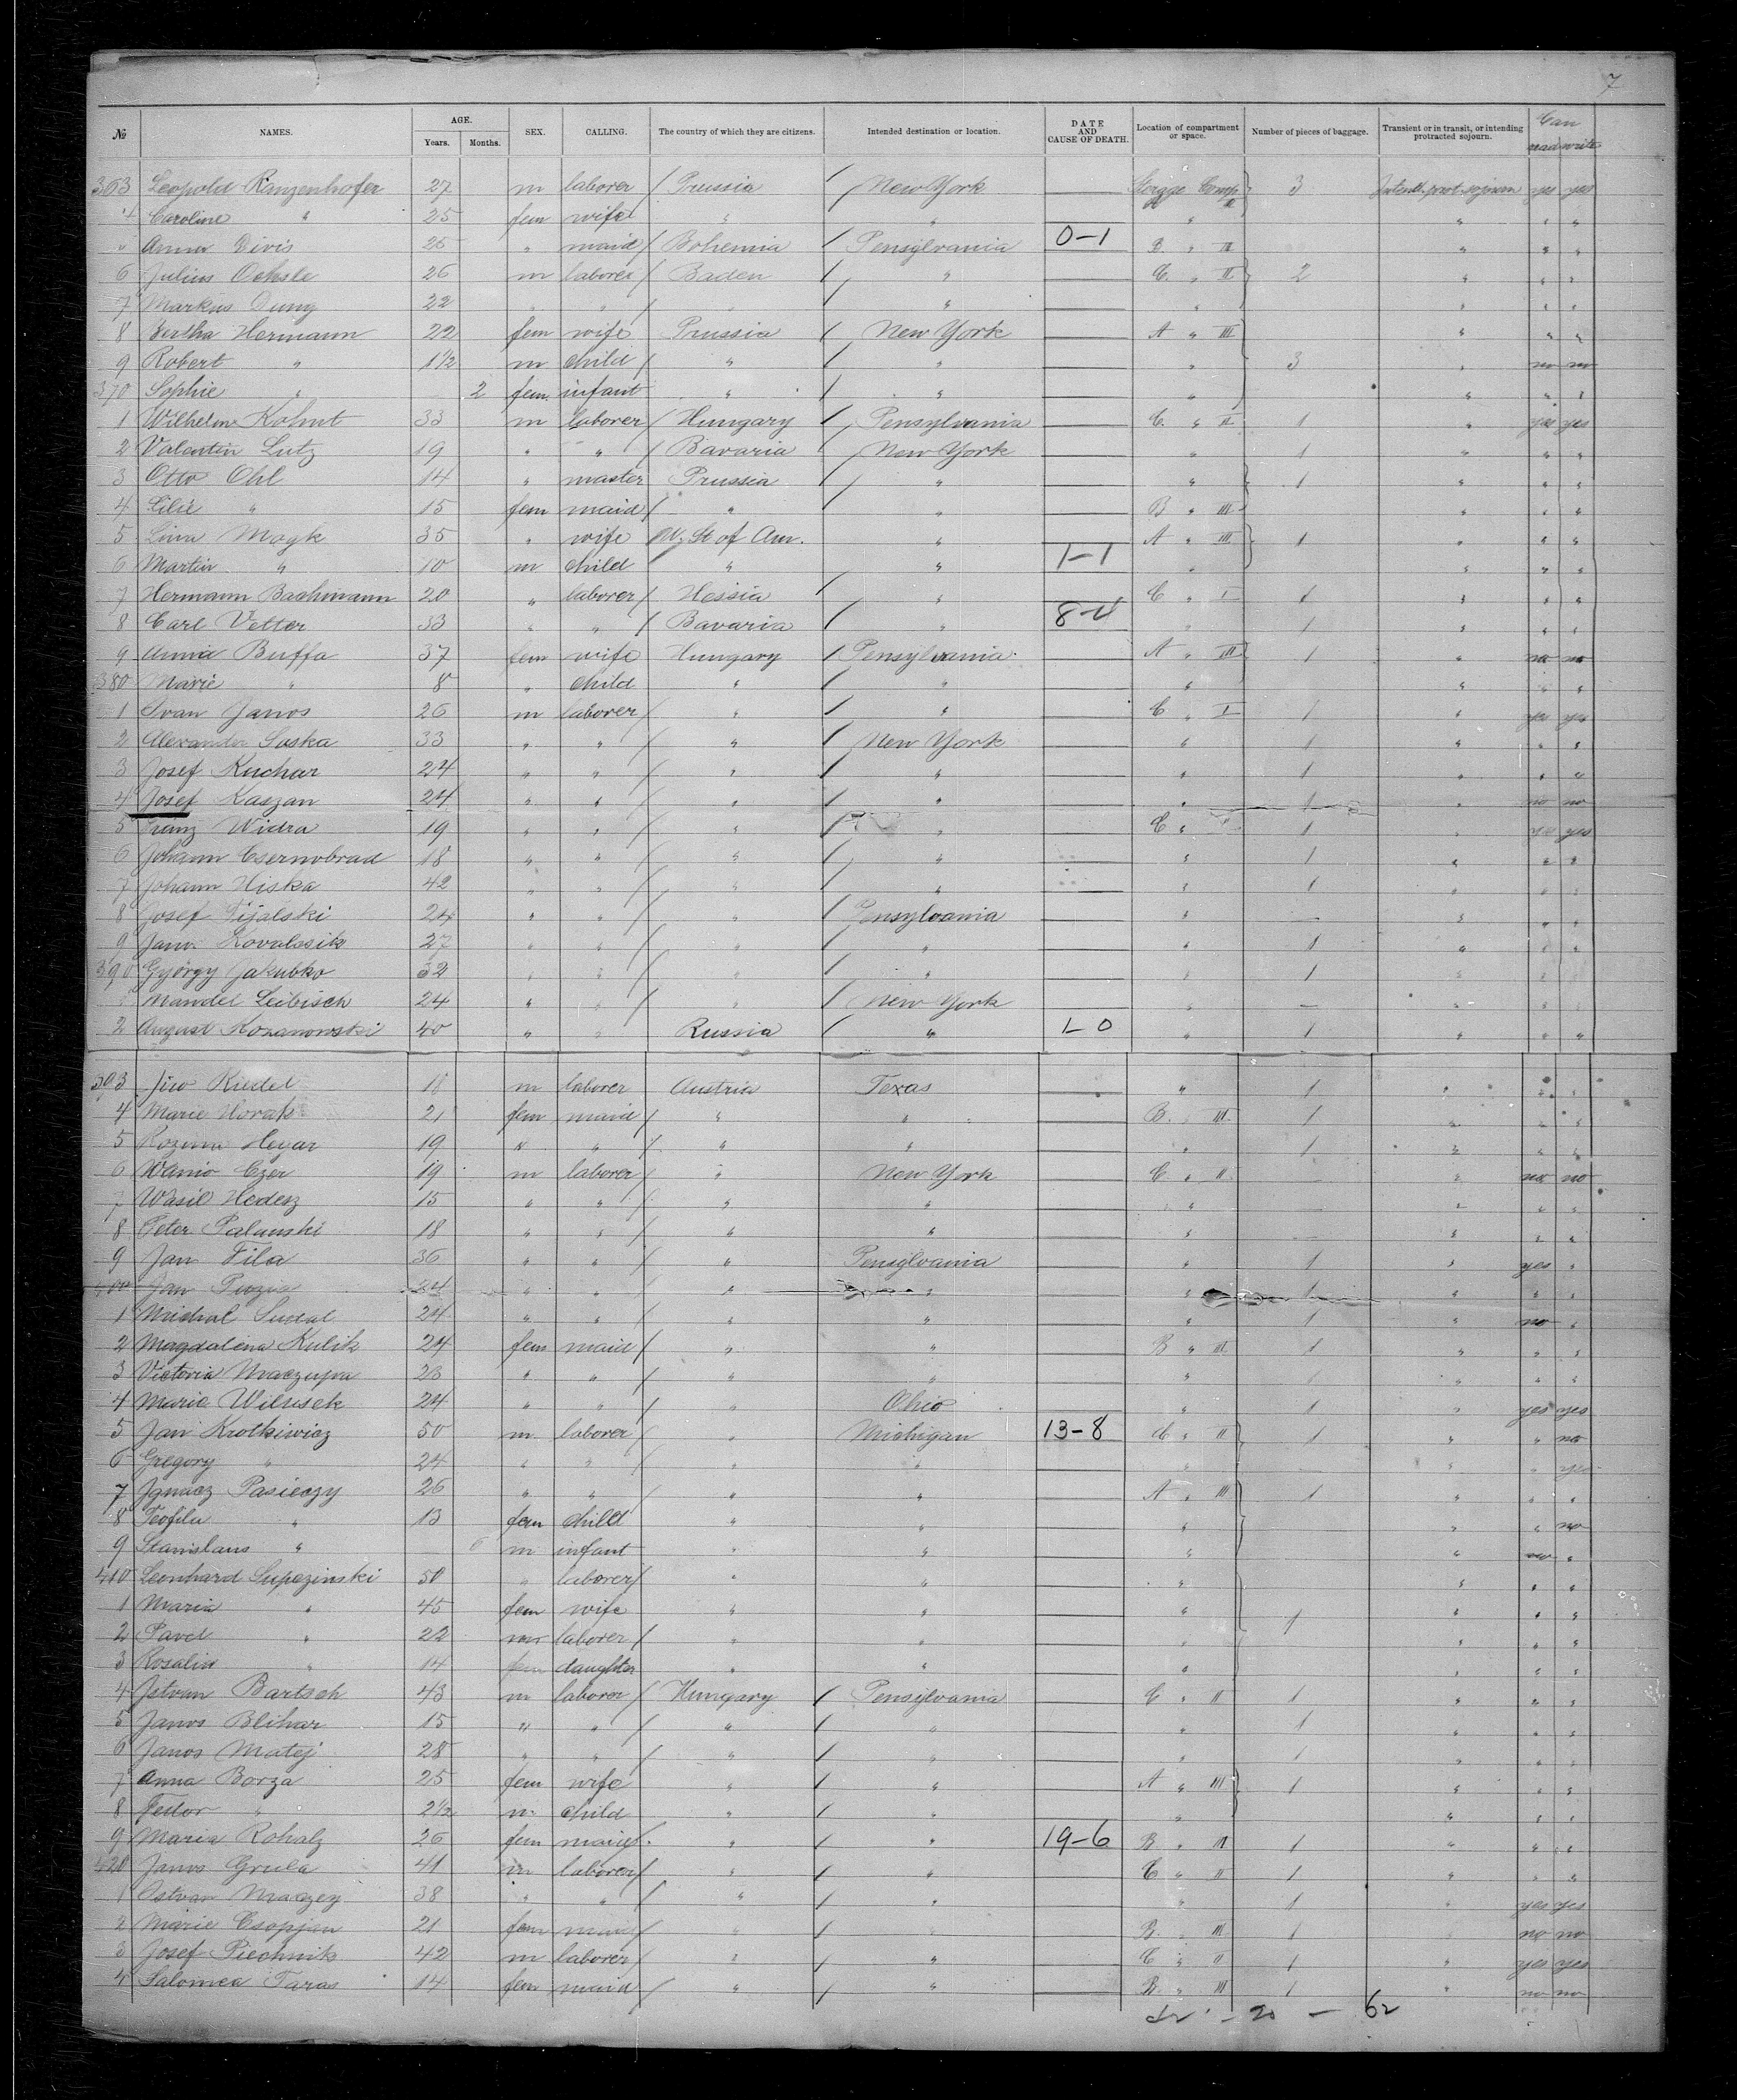 7
№ NAMES. AGE. Years. Months. SEX. CALLING. The country of which they are citizens. Intended destination or location. DATE AND CAUSE OF DEATH. Location of compartment or space. Number of pieces of baggage. Transient or in transit, or intending protracted sojourn. Can read write
363 Leopold Ringenhofer 27 m laborer / Prussia / New York 3 yes yes
4 Caroline " 25 fem wife " " " " " "
" Anna Divis 25 " maid / Bohemia / Pensylvania 0-1 B " III " " "
6 Julius Oehsle 26 m laborer / Baden / " C. " II 2 " " "
7 Markus Dung 22 " " / / " " " " "
8 Bertha Hermann 22 fem wife Prussia / New York A " III " " "
9 Robert " 1½ m child / " / " " 3 " no no
370 Sophie " 2 fem. infant " / " " " " "
1 Wilhelm Kohnt 33 m laborer / Hungary / Pensylvania C. " II 1 " yes yes
2 Valentin Lutz 19 " " / Bavaria / New York " 1 " " "
3 Otto Ohl 14 " master Prussia / " " 1 " " "
4 Lilie " 15 fem maid / " / " B " III " " "
5 Lina Mogk 35 " wife U. St of Am. " A " III 1 " " "
6 Martin " 10 m child " " 1-1 " " " "
7 Hermann Bachmann 20 " laborer / Hessia / " C " I 1 " " "
8 Carl Vetter 33 " " / Bavaria / " " 1 " " "
9 Anna Buffa 37 fem wife Hungary / Pensylvania A " III 1 " no no
380 Marie " 8 " child " / " " " " "
1 Ivan Janos 26 m laborer / " / " C " I 1 " yes yes
2 Alexander Soska 33 " " / " / New York " 1 " " "
3 Josef Kuchar 24 " " / " / " " 1 " " "
4 Josef Kaszan 24 " " / " / " " 1 " no no
5 Franz Widra 19 " " / " / " C " II 1 " yes yes
6 Johann Csernobrad 18 " " / " / " " 1 " " "
7 Johann Hiska 42 " " / " / " " 1 " " "
8 Josef Fijalski 24 " " / " / Pensylvania " — " " "
9 Jan. Kovalssik 27 " " / " / " " 1 " " "
390 György Jakubko 32 " " / " / " " 1 " " "
1 Mandel Leibisch 24 " " / " / New York " — " " "
2 August Kozanowski 40 " " Russia / " 1-0 " 1 " " "
393 Riedel m laborer Austria Texas " 1 " " "
4 Marie Horak 21 fem maid / " " B. " III 1 " " "
5 Heyar 19 " " / " " " 1 " " "
6 Wanio Czer 19 m laborer / " New York C " II " no no
7 Wasil Hedesz 15 " " / " " " " " "
8 Peter Palanski 18 " " / " " " " " "
9 Jan Fila 36 " " / " Pensylvania " 1 " yes "
400 Jan 24 " " / " " " 1 " " "
1 Michal Sudal 24 " " / " " " 1 " no "
2 Magdalena Kulik 24 fem maid / " " B " III 1 " " "
3 Victoria 23 " " / " " " 1 " " "
4 Marie Wilusek 24 " " / " Ohio " 1 " yes yes
5 Jan Krotkiwicz 50 m laborer / " Michigan 13-8 C " II 1 " " no
6 Gregory " 24 " " / " " " " " yes
7 Ignacz Pasieczy 26 " " / " " A " III 1 " " "
8 Teofila " 13 fem child " " " " " no
9 Stanislaus " 6 m infant " " " " no "
410 Leonhard Supczinski 50 " laborer / " " " " " "
1 Maria " 45 fem wife " " " 1 " " "
2 Pavel " 22 m laborer / " " " " " "
3 Rosalia " 14 fem daughter " " " " " "
4 Istvan Bartsch 43 m laborer / Hungary / Pensylvania C " II 1 " " "
5 Janos Blihar 15 " " / " / " " 1 " " "
6 Janos Matej 28 " " / " / " " 1 " " "
7 Anna Borza 25 fem wife " / " A " III 1 " " "
8 Fedor " 2½ m. child " / " " " " "
9 Maria Rohalz 26 fem maid " / " 19-6 B " III 1 " " "
420 Janos Grula 41 m laborer / " / " C " II 1 " " "
1 Istvan Maczey 38 " " / " / " " 1 " yes yes
2 Marie Csopjan 21 fem maid / " / " B. " III 1 " no no
3 Josef Piechnik 42 m laborer / " / " C " II 1 " yes yes
4 Salomea Taras 14 fem maid / " / " B. " III 1 " no no
- 20 — 62